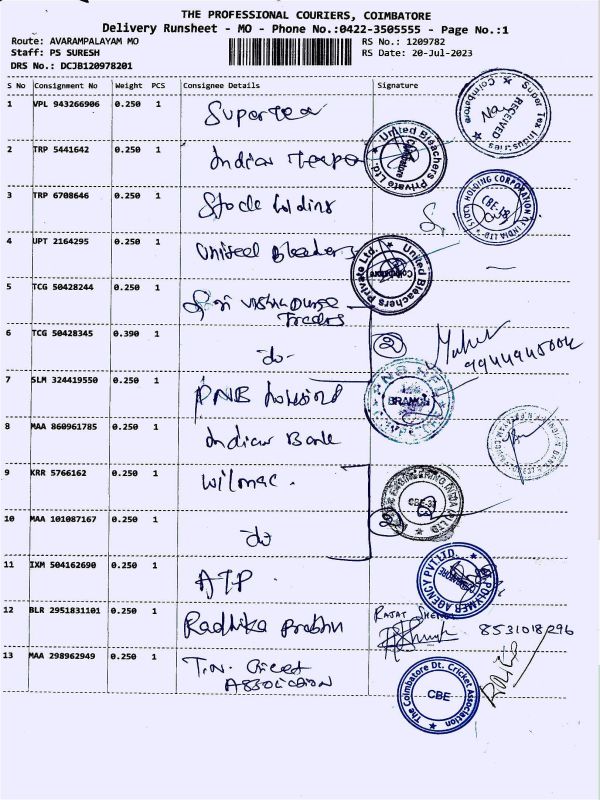 THE PROFESSIONAL COURIERS, COIMBATORE
Delivery Runsheet - MO - Phone No.:0422-3505555 - Page No.:1
Route: AVARAMPALAYAM MO
Staff: PS SURESH
DRS No.: DCJB120978201
RS No.: 1209782
RS Date: 20-Jul-2023
S No Consignment No Weight PCS Consignee Details Signature
1 VPL 943266906 0.250 1 Supertex
Coimbatore Super Tex Industries RECEIVED
2 TRP 5441642 0.250 1 Indian
United Bleachers Private Ltd. Coimbatore
3 TRP 6708646 0.250 1 Stock holding
STOCK HOLDING CORPORATION OF INDIA LTD CBE-18
4 UPT 2164295 0.250 1 United Bleachers
United Bleachers Private Ltd. Coimbatore
5 TCG 50428244 0.250 1 Sri Vishnu Durga
Traders
6 TCG 50428345 0.390 1 do- 2
7 SLM 324419550 0.250 1 PNB housing
BRANCH
8 MAA 860961785 0.250 1 Indian Bank
9 KRR 5766162 0.250 1 Wilmac.
10 MAA 101087167 0.250 1 do
11 IXM 504162690 0.250 1 ATP.
POLYMER AGENCY PVT.LTD.
12 BLR 2951831101 0.250 1 Radhika Prabhu
8531018296
13 MAA 298962949 0.250 1 T.N. Cricket
ASSOCIATION
The Coimbatore Dt. Cricket Association CBE